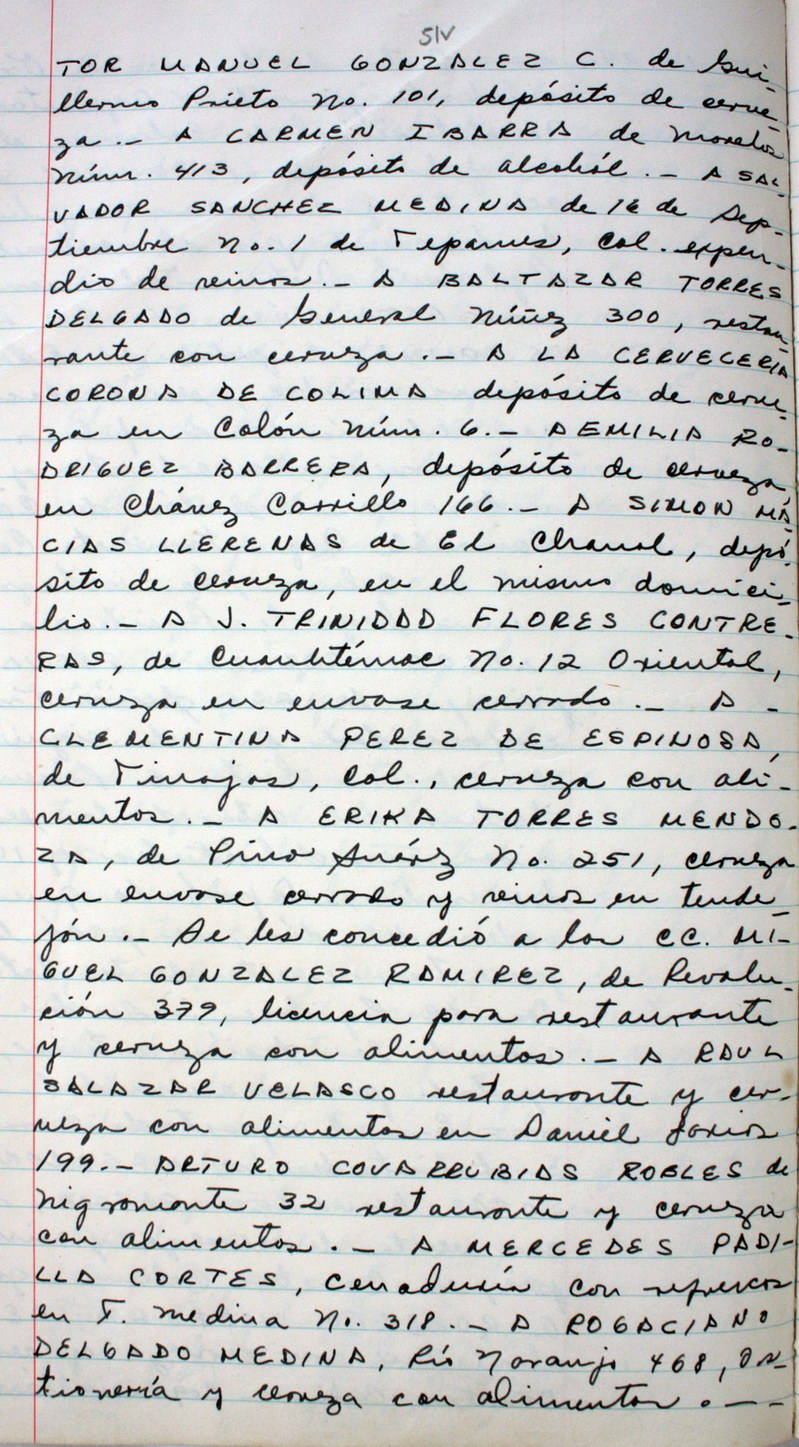 51v
TOR MANUEL GONZALEZ C. de Gui-
llermo Prieto No. 101, depósito de cerve-
za.- A CARMEN IBARRA de Morelos
Núm. 413, depósito de alcohól.- A SAL-
VADOR SANCHEZ MEDINA de 16 de Sep-
tiembre No. 1 de Tepames, Col. expen-
dio de vinos.- A BALTAZAR TORRES
DELGADO de General Núñez 300, restau-
rante con cerveza.- A LA CERVECERIA
CORONA DE COLIMA depósito de cerve-
za en Colón Núm. 6.- A EMILIA RO-
DRIGUEZ BARRERA, depósito de cerveza,
en Chávez Carrillo 166.- A SIMON MA-
CIAS LLERENAS de El Chanal, depó-
sito de cerveza, en el mismo domici-
lio.- A J. TRINIDAD FLORES CONTRE-
RAS, de Cuauhtémoc No. 12 Oriental,
cerveza en envase cerrado.- A -
CLEMENTINA PEREZ DE ESPINOSA,
de Tinajas, Col., cerveza con ali-
mentos.- A ERIKA TORRES MENDO-
ZA, de Pino Suárez No. 251, cerveza
en envase cerrado y vinos en tende-
jón.- Se les concedió a los CC. MI-
GUEL GONZALEZ RAMIREZ, de Revolu-
ción 379, licencia para restaurante
y cerveza con alimentos.- A RAUL
SALAZAR VELASCO restaurante y cer-
veza con alimentos en Daniel Larios
199.- ARTURO COVARRUBIAS ROBLES de
Nigromante 32 restaurante y cerveza
con alimentos.- A MERCEDES PADI-
LLA CORTES, cenaduría con refrescos
en T. Medina No. 318.- A ROGACIANO
DELGADO MEDINA, Río Naranjo 468, os-
tionería y cerveza con alimentos.--